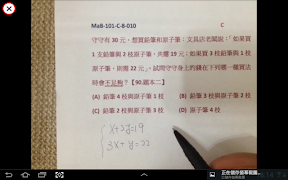 MaB-101-C-B-010 C
守守有 30 元，想買鉛筆和原子筆，文具店老闆說：「如果買
1 支鉛筆與 2 枝原子筆，則需 19 元；如果買 3 枝鉛筆與 1 枝
原子筆，則需 22 元」，試問守守身上的錢在下列哪一種買法
時會不足夠？【90.繭本二】
(A) 鉛筆 4 枝原子筆 1 枝 (B) 鉛筆 3 枝與原子筆 2 枝
(C) 鉛筆 2 枝與原子筆 3 枝 (D) 原子筆 4 枝
x+2y=19
3x+y=22